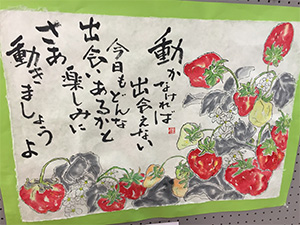 動かなければ
出会えない
今日もどんな
出会いあるかと
楽しみに
さあ
動きましょうよ